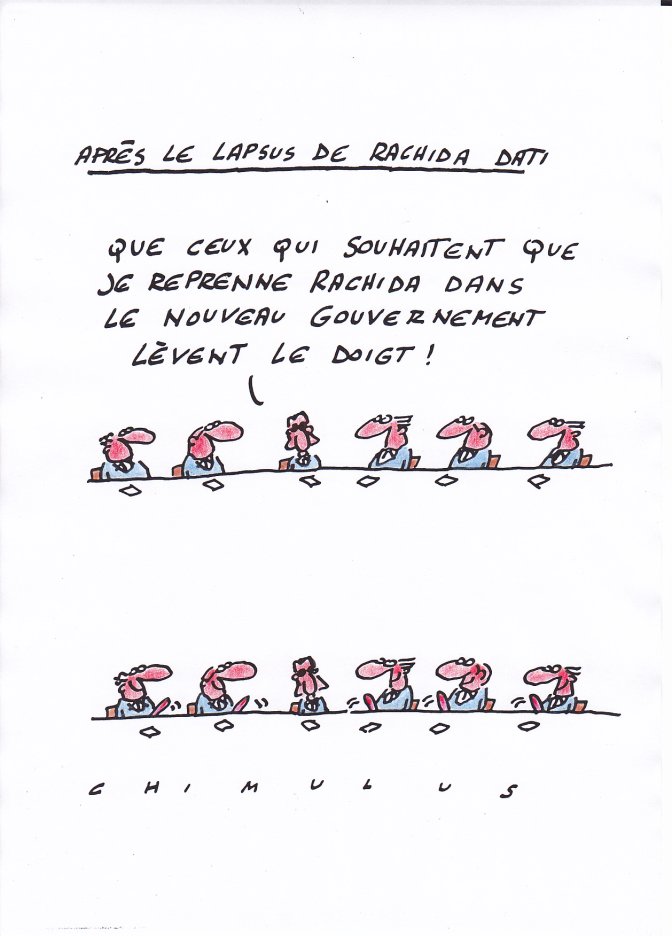 APRÈS LE LAPSUS DE RACHIDA DATI
QUE CEUX QUI SOUHAITENT QUE
JE REPRENNE RACHIDA DANS
LE NOUVEAU GOUVERNEMENT
LÈVENT LE DOIGT !
CHIMULUS